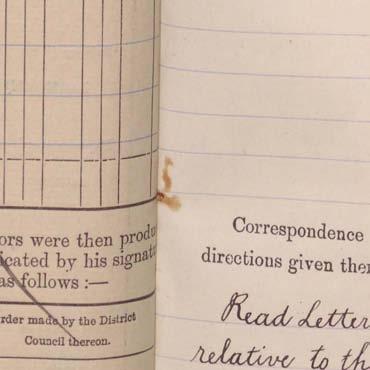 ors were then produ
icated by his signat
as follows :—
rder made by the District
Council thereon.
Correspondence
directions given ther
Read Letter
relative to th